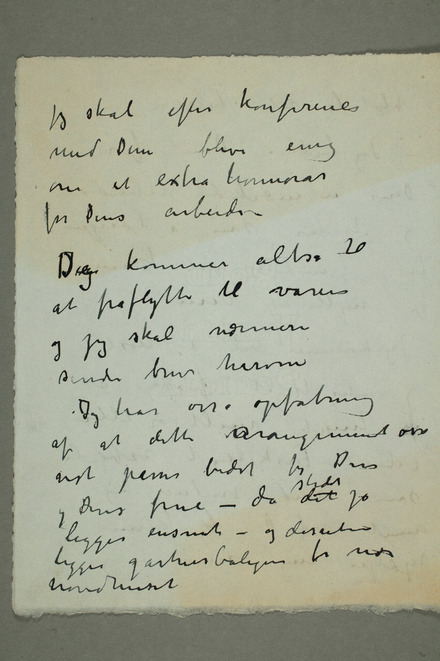 Jeg skal efter konference
med Dem blive enig
om et extra honnorar
for Deres arbeide
De kommer altså til
at fraflytte til våren
og jeg skal nærmere
sende brev herom
Jeg har også opfatning
af at dette arangement også
vist passer bedst for Dem
og Deres frue – da stedet jo
ligger ensomt – og desuden
ligger gartnerboligen for nær
hovedhuset